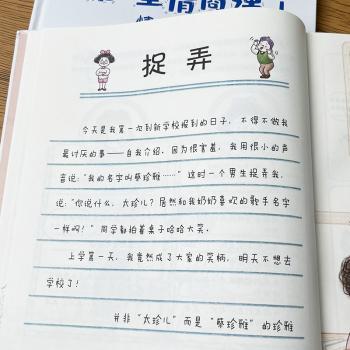 捉弄
今天是我第一次到新学校报到的日子，不得不做我
最讨厌的事——自我介绍。因为很害羞，我用很小的声
音说：“我的名字叫蔡珍雅……”这时一个男生捉弄我，
说：“你说什么，太珍儿？居然和我奶奶喜欢的歌手名字
一样啊！”同学都拍着桌子哈哈大笑。
上学第一天，我竟然成了大家的笑柄，明天不想去
学校了！
并非“太珍儿”而是“蔡珍雅”的珍雅